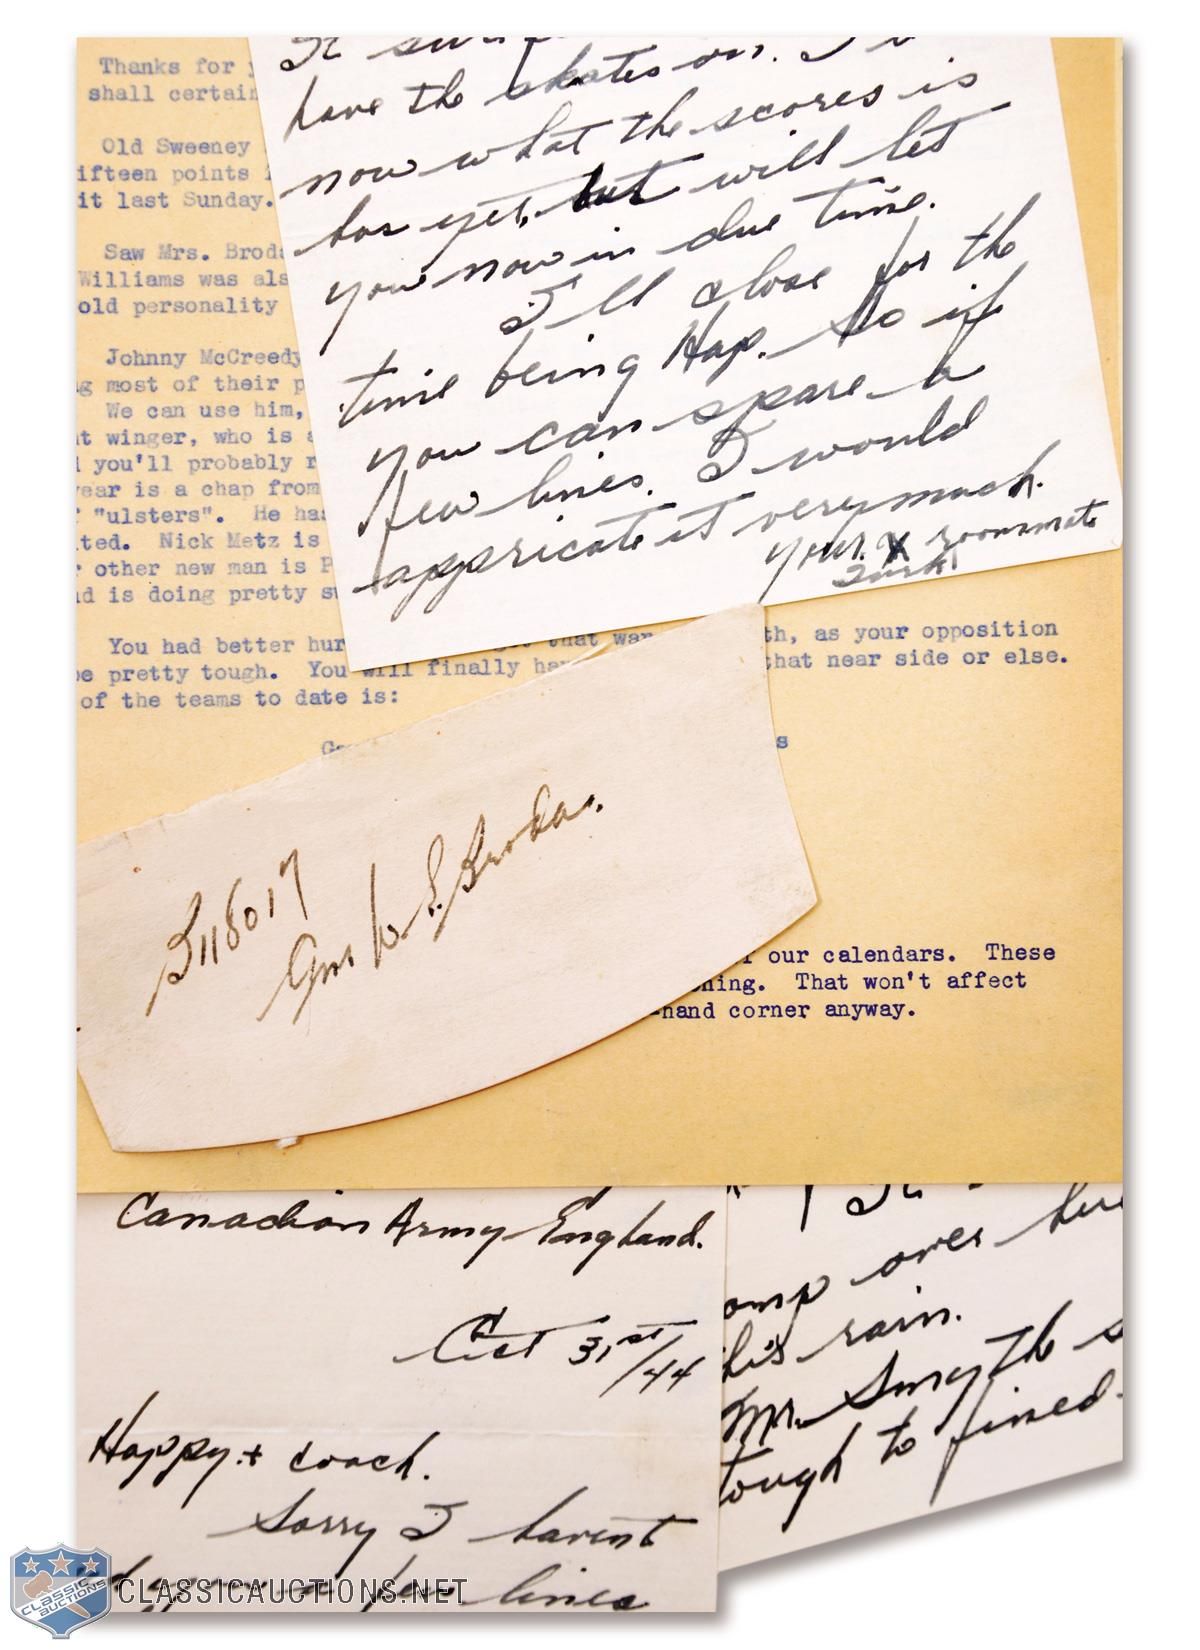 Thanks for
shall certain
Old Sweeney
ifteen points
it last Sunday.
Saw Mrs. Broda
Williams was als
old personality
Johnny McCreedy
g most of their p
We can use him,
t winger, who is a
you'll probably r
ear is a chap from
"ulsters". He has
ted. Nick Metz is
other new man is P
d is doing pretty s
You had better hur
e pretty tough. You will finally hav
of the teams to date is:
that war
th, as your opposition
that near side or else.
s
our calendars. These
hing. That won't affect
-hand corner anyway.
have the skates on. I
now what the scores is
has yet, but will let
you now in due time.
I'll close for the
time being Hap. So if
you can spare a
few lines. I would
appricate it very much.
Your X roommate
Turk
B118017
Gnr W. E. Broda.
Canadian Army England.
Oct 31st/44
Happy + coach.
Sorry I havent
you a few lines
omp over here
his rain.
Mr. Smythe s
tough to fined
CLASSIC AUCTIONS
CLASSICAUCTIONS.NET